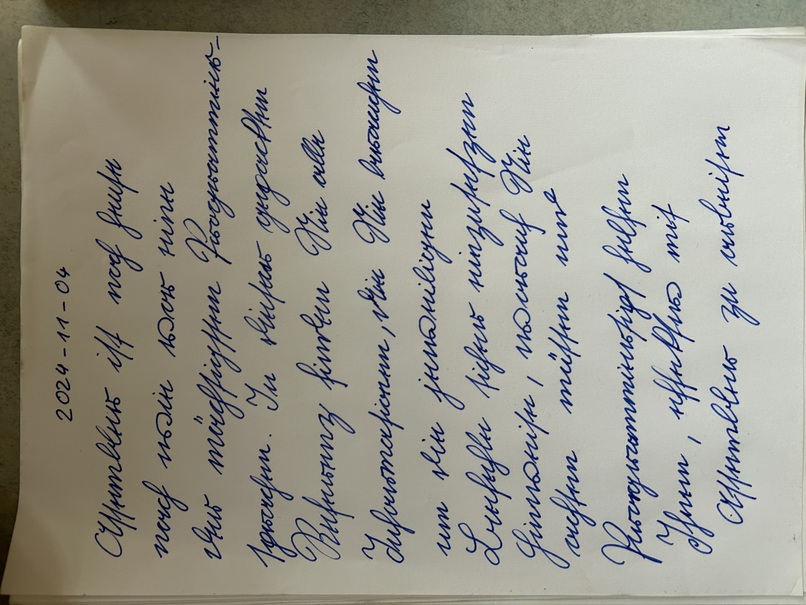 2024-11-04
Assembler ist noch heute
nach wie vor eine
der mächtigsten Programmier-
sprachen. In dieser gepackten
Referenz finden Sie alle
Informationen, die Sie brauchen
um die jeweiligen
Befehle sicher einzusetzen
Hinweise, worauf Sie
achten müssen und
Programmiertips helfen
Ihnen, effektiv mit
Assembler zu arbeiten